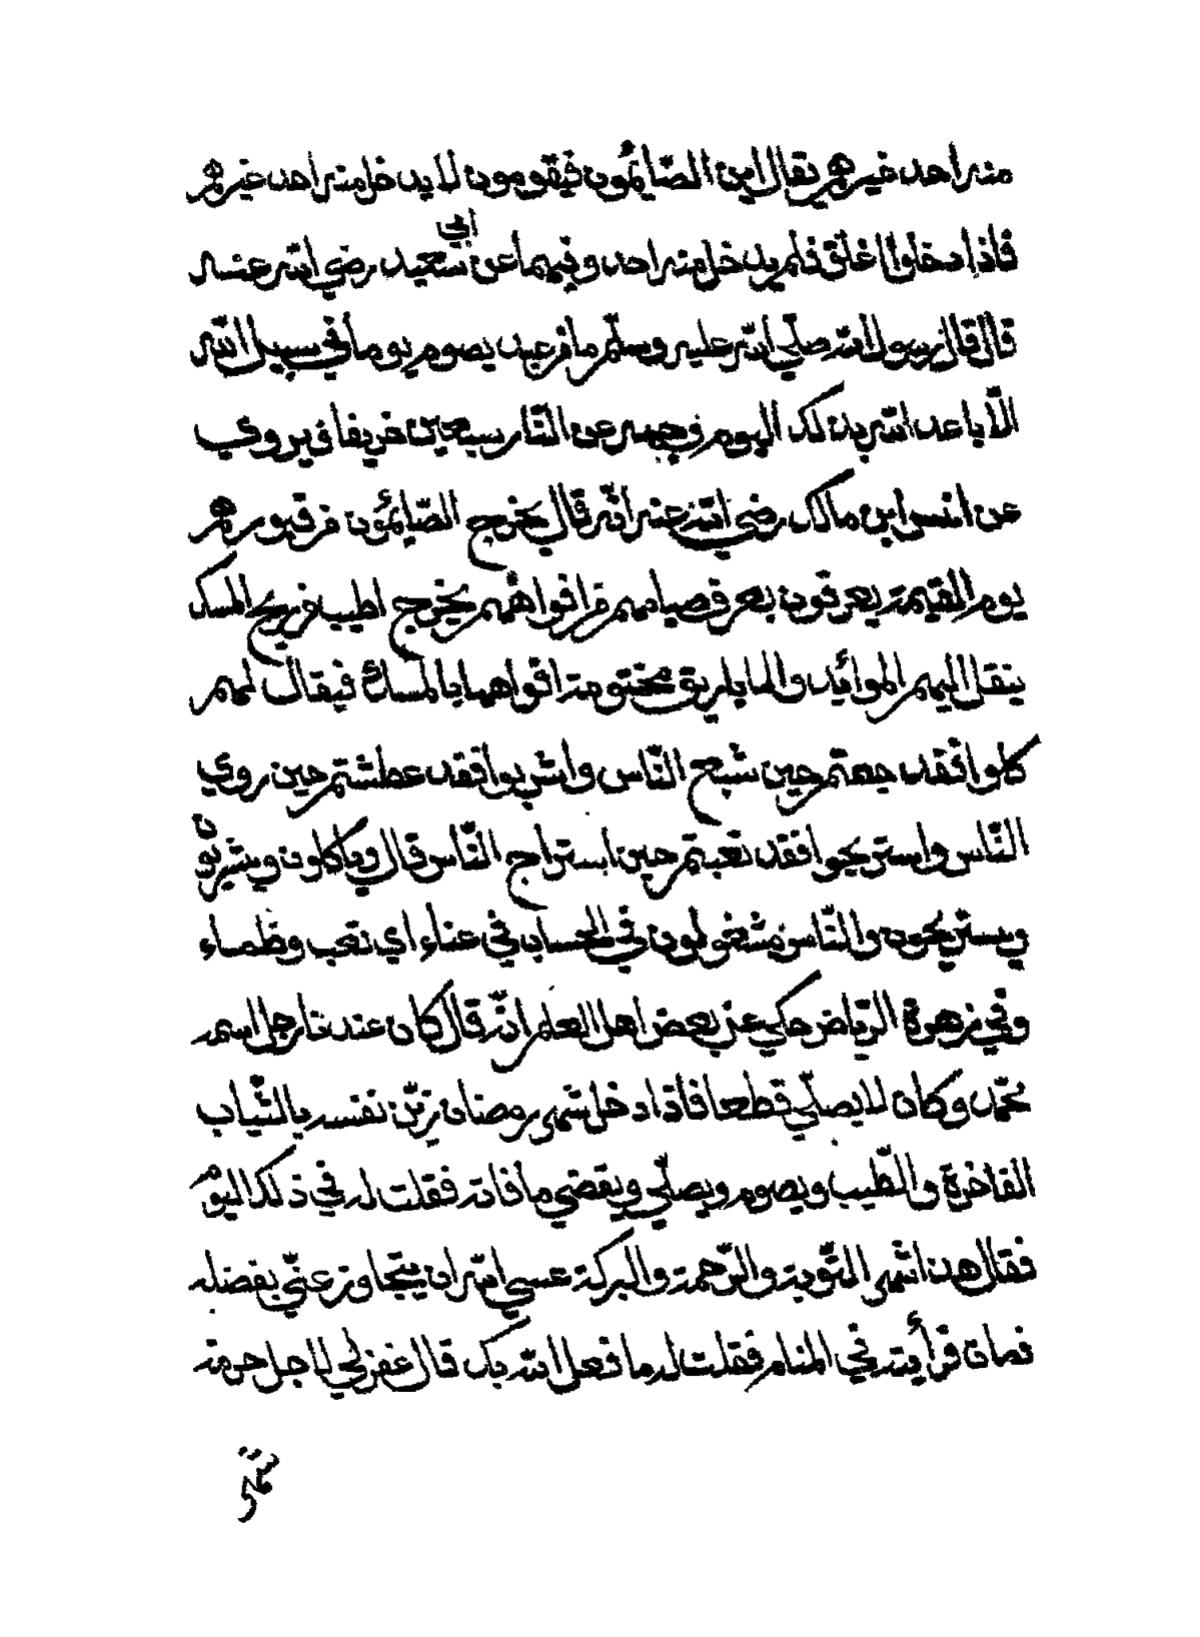 منه احد غيرهم يقال اين الصّايمون فيقومون لا يدخل منه احد غيرهم
فاذا دخلوا اغلق فلم يدخل منه احد وفيهما عن أبي سعيد رضي الله عنه
قال قال رسول الله صلّى الله عليه وسلّم ما من عبد يصوم يوما في سبيل الله
الّا باعد الله بذلك اليوم وجهه عن النّار سبعين خريفا ويروي
عن انس ابن مالك رضي الله عنه انّه قال يخرج الصّايمون من قبورهم
يوم القيمة يعرفون بعرف صيامهم من افواههم يخرج اطيب من ريح المسك
ينقل اليهم الموائد والاباريق مختومة افواهها بالمسك فيقال لهم
كلوا فقد جعتم حين شبع النّاس واشربوا فقد عطشتم حين روي
النّاس واستريحوا فقد تعبتم حين استراح النّاس قال وياكلون ويشربون
ويستريحون والنّاس مشغولون في الحساب في عناء اي تعب وظماء
وفي زهرة الرّياض حكي عن بعض اهل العلم انّه قال كان عندنا رجل اسمه
محمّد وكان لا يصلّي قطعا فاذا دخل شهر رمضان زيّن نفسه بالثّياب
الفاخرة والطّيب ويصوم ويصلّي ويقضي ما فاته فقلت له في ذلك اليوم
فقال هذا شهر التّوبة والرّحمة والبركة عسي الله ان يتجاوز عنّي بفضله
فمات فرأيته في المنام فقلت له ما فعل الله بك قال غفر لي لاجل حرمة